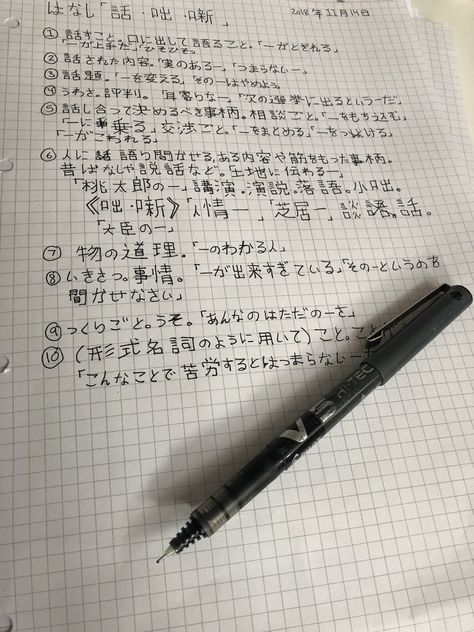 はなし「話・咄・噺」 2018年11月14日
①話すこと。口に出して語ること。「ーがとぎれる」
「ーが上手だ」「ひそひそー」
②話された内容。「実のあるー」「つまらないー」
③話題。「ーを変える」「そのーはやめよう」
④うわさ。評判。「耳寄りなー」「次の選挙に出るというーだ」
⑤話し合って決めるべき事柄。相談ごと。「ーをもちこむ」
「ーに乗る」交渉ごと。「ーをまとめる」「ーをつける」
「ーがこわれる」
⑥人に語り聞かせる、ある内容や筋をもった事柄。
昔ばなしや説話など。「土地に伝わるー」
「桃太郎のー」講演。演説。落語。小咄。
《咄・噺》「人情ー」「芝居ー」談話。
「大臣のー」
⑦物の道理。「ーのわかる人」
⑧いきさつ。事情。「ーが出来すぎている」「そのーというのを
聞かせなさい」
⑨つくりごと。うそ。「あんなのはただのーさ」
⑩(形式名詞のように用いて)こと。
「こんなことで苦労するとはつまらないー
V
HI-TEC